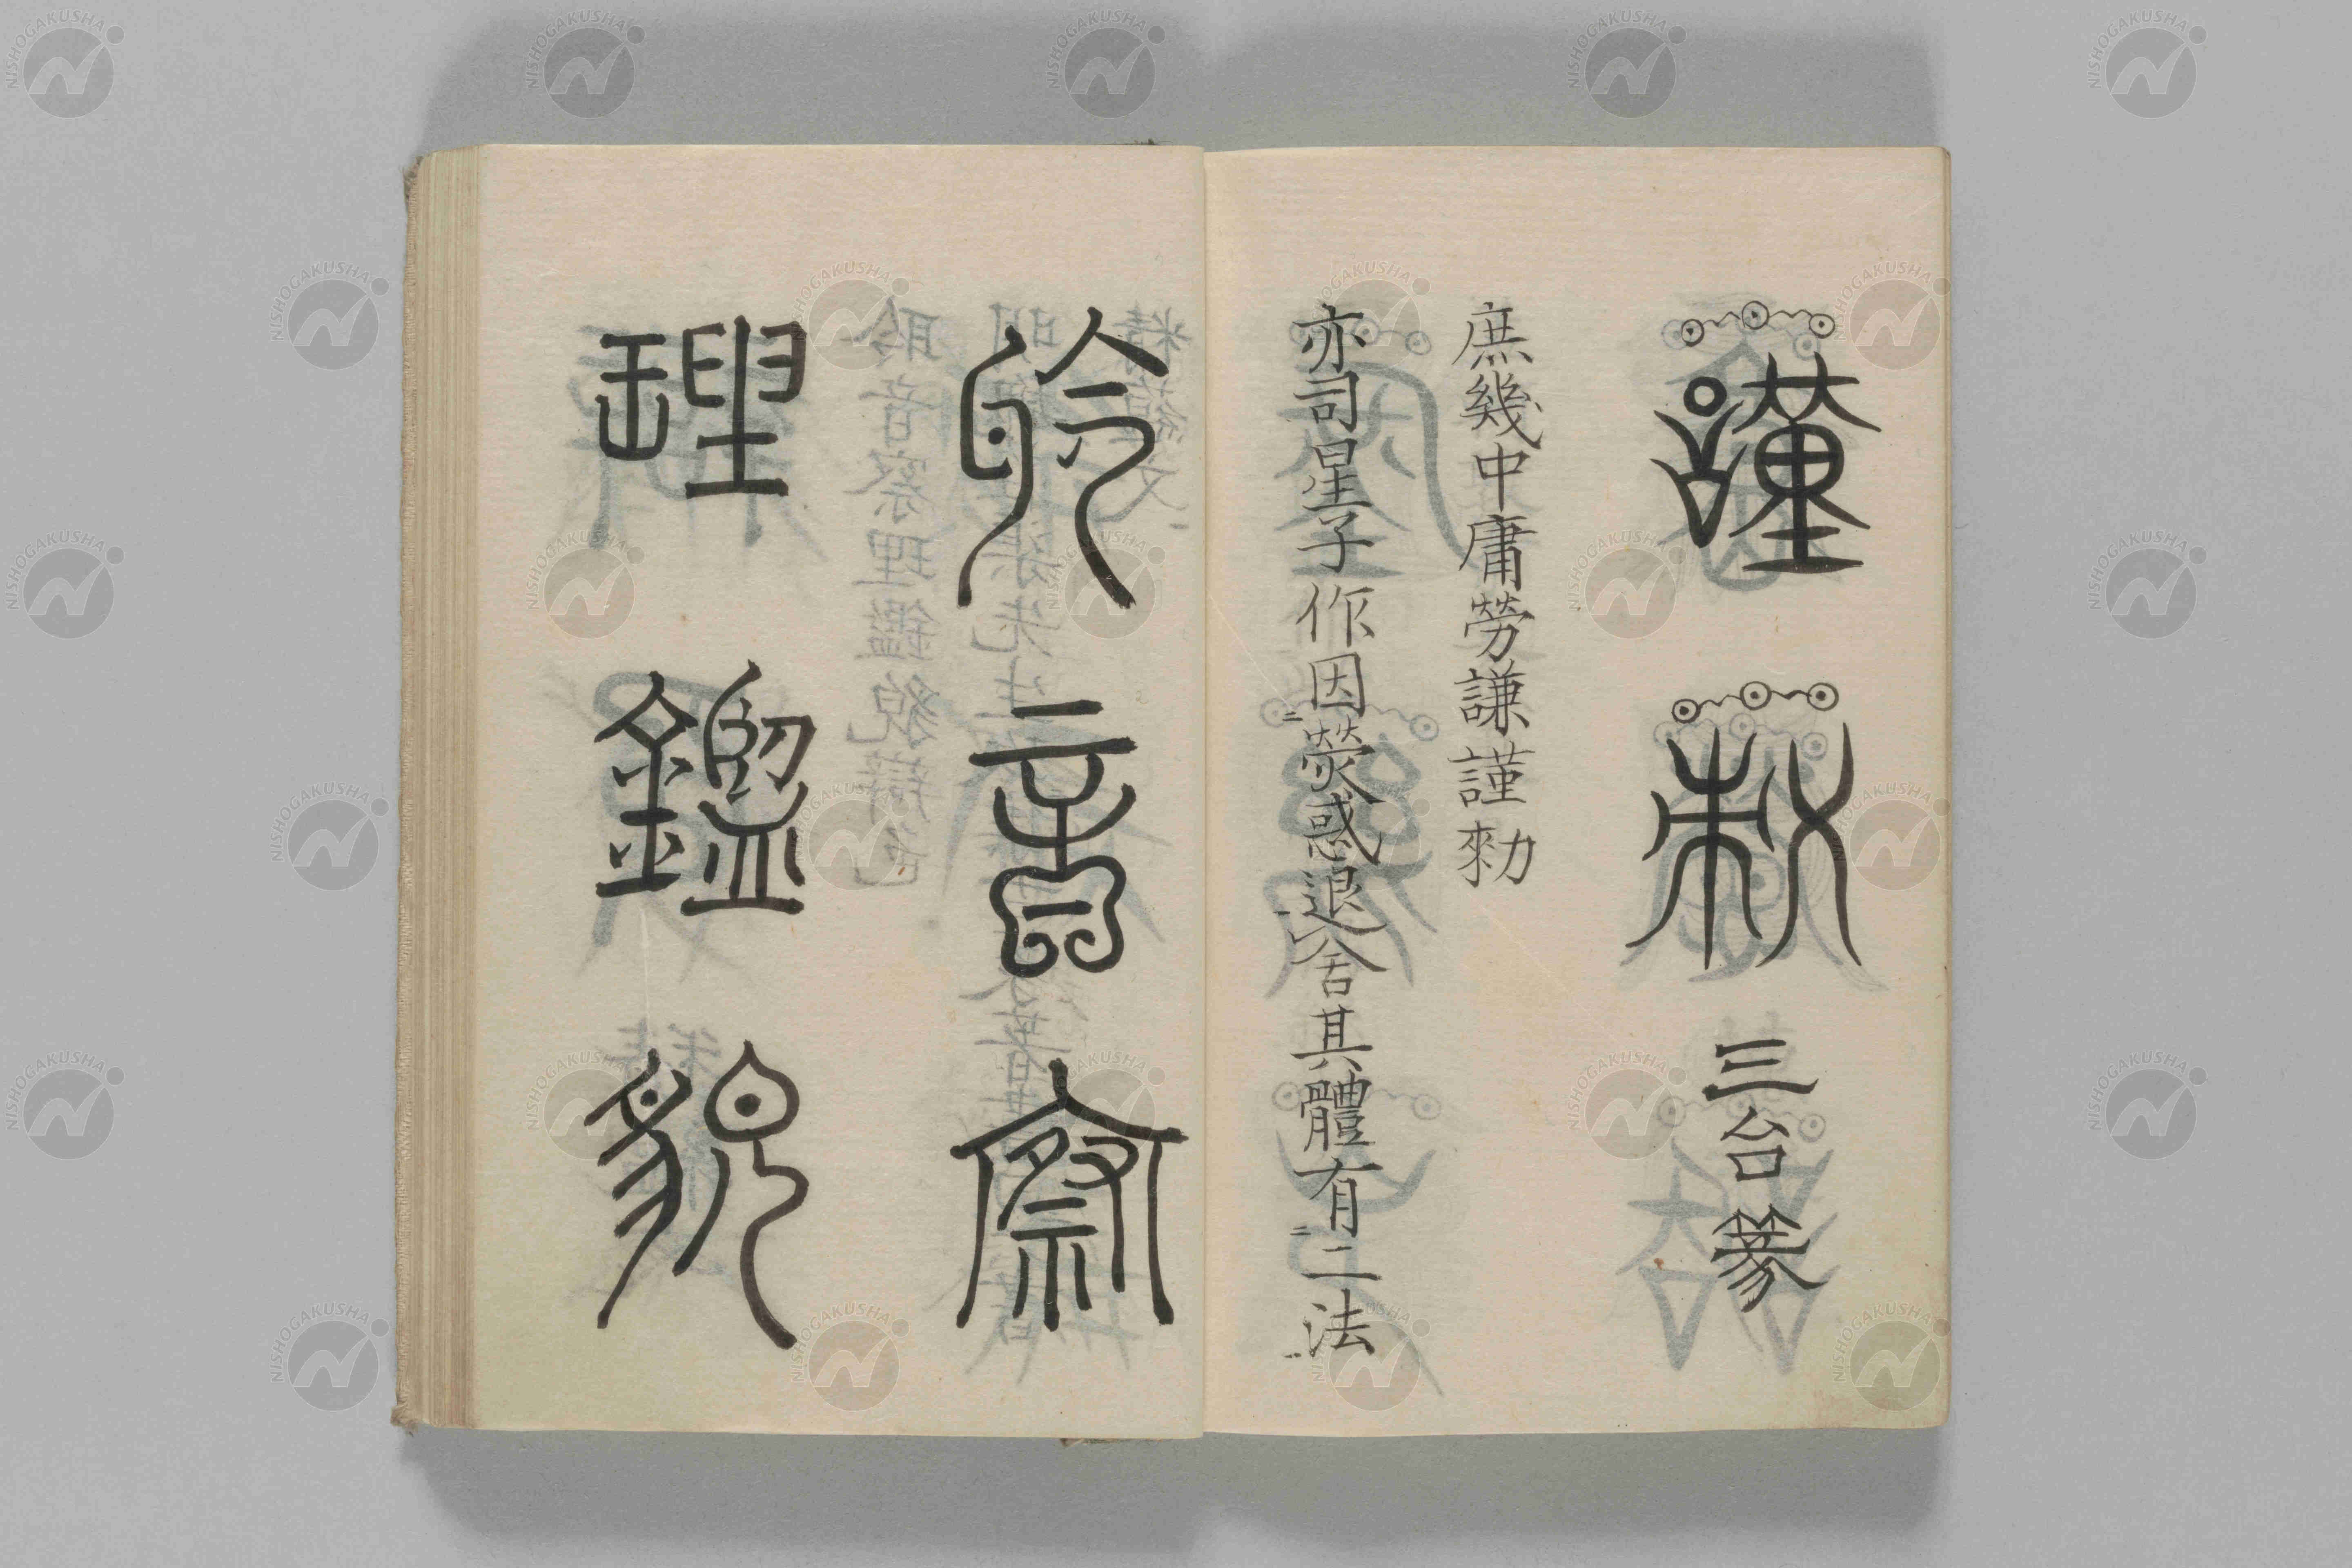 謹敕三台篆
庶幾中庸勞謙謹勑
亦司星子作因熒惑退舍其體有二法
聆音察
理鑑貌
NISHOGAKUSHA